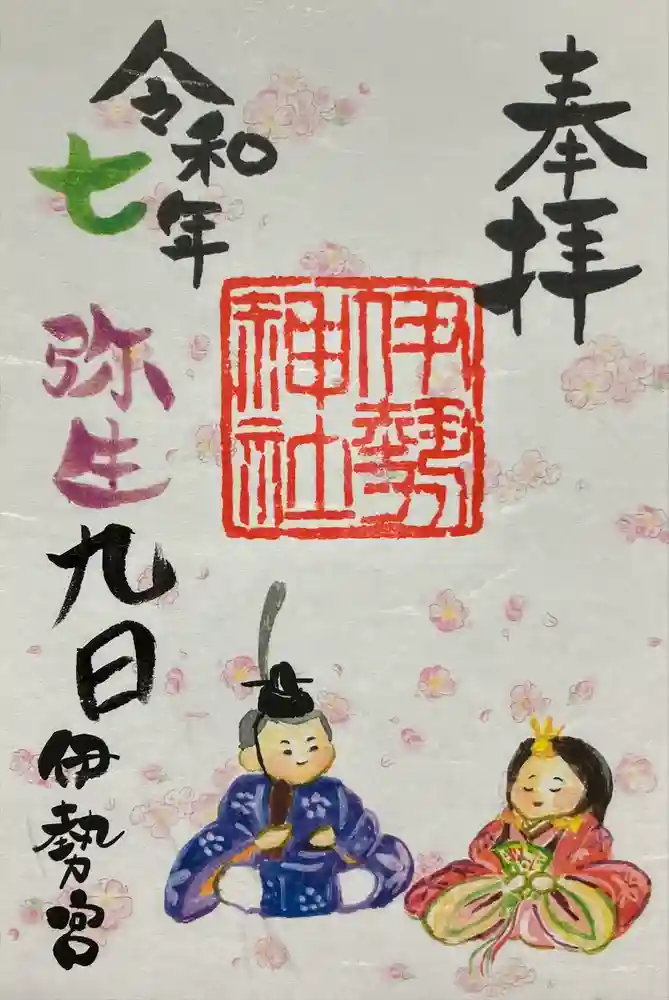 奉拝
伊勢
神社
令和
七年
弥生
九日
伊勢宮